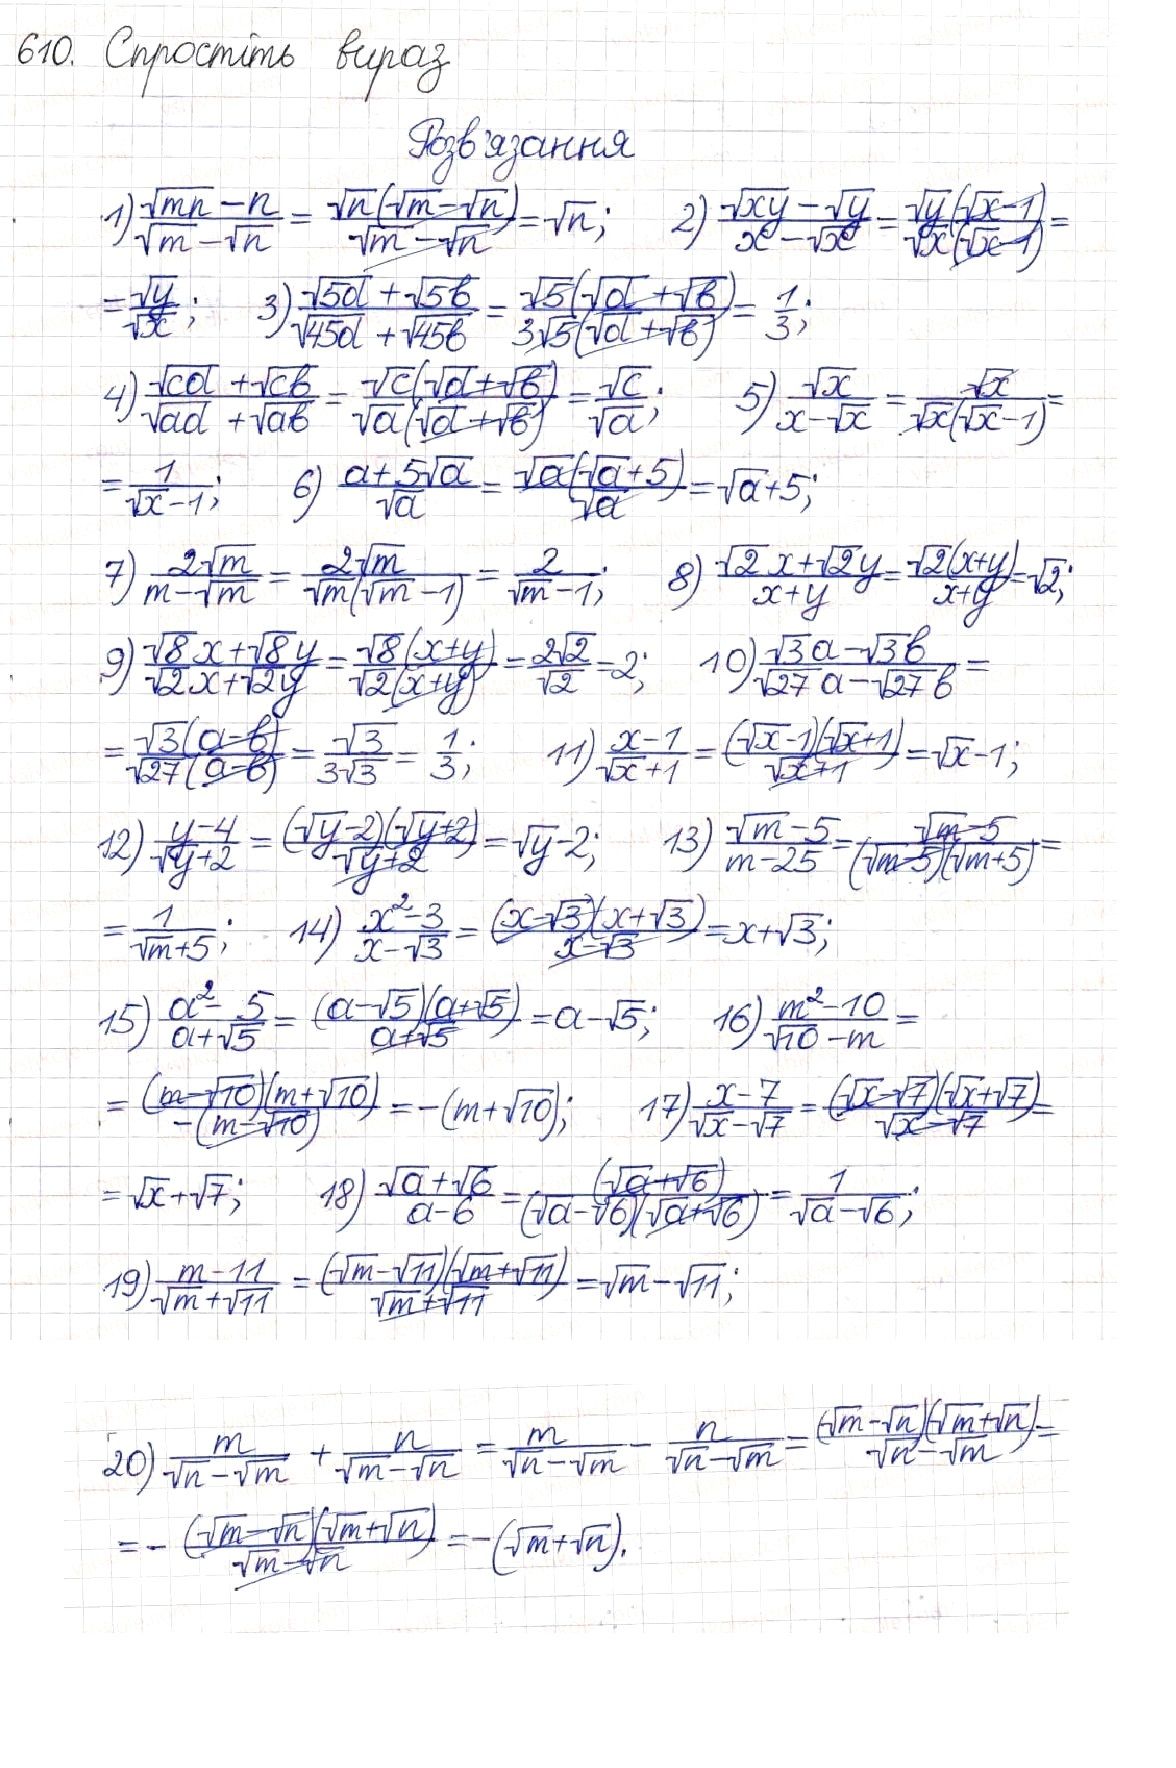 610. Спростіть вираз
Розв'язання
1) (√mn − n)/(√m − √n) = √n(√m − √n)/(√m − √n) = √n; 2) (√xy − √y)/(x − √x) = √y(√x − 1)/(√x(√x − 1)) =
= √y/√x; 3) (√5d + √5b)/(√45d + √45b) = √5(√d + √b)/(3√5(√d + √b)) = 1/3;
4) (√cd + √cb)/(√ad + √ab) = √c(√d + √b)/(√a(√d + √b)) = √c/√a; 5) √x/(x − √x) = √x/(√x(√x − 1)) =
= 1/(√x − 1); 6) (a + 5√a)/√a = √a(√a + 5)/√a = √a + 5;
7) 2√m/(m − √m) = 2√m/(√m(√m − 1)) = 2/(√m − 1); 8) (√2x + √2y)/(x + y) = √2(x + y)/(x + y) = √2;
9) (√8x + √8y)/(√2x + √2y) = √8(x + y)/(√2(x + y)) = 2√2/√2 = 2; 10) (√3a − √3b)/(√27a − √27b) =
= √3(a − b)/(√27(a − b)) = √3/(3√3) = 1/3; 11) (x − 1)/(√x + 1) = (√x − 1)(√x + 1)/(√x + 1) = √x − 1;
12) (y − 4)/(√y + 2) = (√y − 2)(√y + 2)/(√y + 2) = √y − 2; 13) (√m − 5)/(m − 25) = (√m − 5)/((√m − 5)(√m + 5)) =
= 1/(√m + 5); 14) (x² − 3)/(x − √3) = (x − √3)(x + √3)/(x − √3) = x + √3;
15) (a² − 5)/(a + √5) = (a − √5)(a + √5)/(a + √5) = a − √5; 16) (m² − 10)/(√10 − m) =
= (m − √10)(m + √10)/(−(m − √10)) = −(m + √10); 17) (x − 7)/(√x − √7) = (√x − √7)(√x + √7)/(√x − √7) =
= √x + √7; 18) (√a + √6)/(a − 6) = (√a + √6)/((√a − √6)(√a + √6)) = 1/(√a − √6);
19) (m − 11)/(√m + √11) = (√m − √11)(√m + √11)/(√m + √11) = √m − √11;
20) m/(√n − √m) + n/(√m − √n) = m/(√n − √m) − n/(√n − √m) = (√m − √n)(√m + √n)/(√n − √m) =
= − (√m − √n)(√m + √n)/(√m − √n) = −(√m + √n).